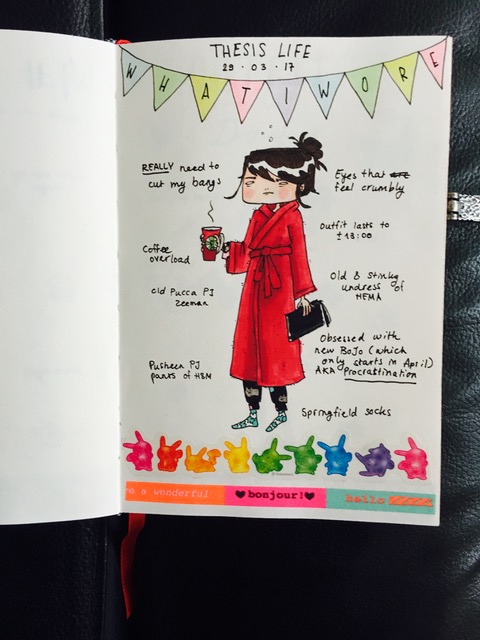 THESIS LIFE
29 · 03 · 17
WHAT I WORE
REALLY need to
cut my bangs
Eyes that are
feel crumbly
Outfit lasts to
± 13:00
Coffee
overload
Old & Stinky
undress of
HEMA
Old Pucca PJ
Zeeman
Obsessed with
new BoJo (which
only starts in April)
AKA Procrastination
Pusheen PJ
pants of H&M
Springfield socks
e a wonderful
bonjour!
hello